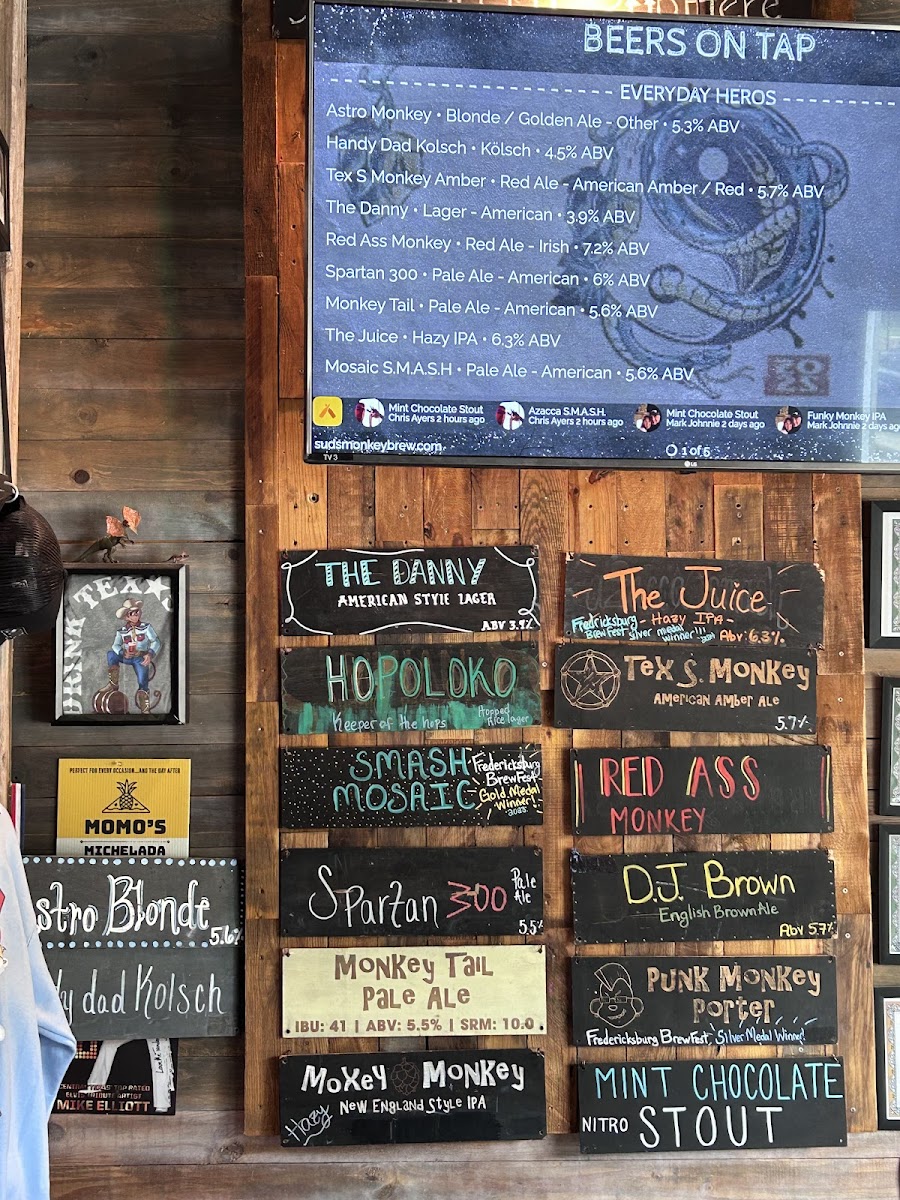 BEERS ON TAP
EVERYDAY HEROS
Astro Monkey • Blonde / Golden Ale - Other • 5.3% ABV
Handy Dad Kolsch • Kölsch • 4.5% ABV
Tex S Monkey Amber • Red Ale - American Amber / Red • 5.7% ABV
The Danny • Lager - American • 3.9% ABV
Red Ass Monkey • Red Ale - Irish • 7.2% ABV
Spartan 300 • Pale Ale - American • 6% ABV
Monkey Tail • Pale Ale - American • 5.6% ABV
The Juice • Hazy IPA • 6.3% ABV
Mosaic S.M.A.S.H • Pale Ale - American • 5.6% ABV
Mint Chocolate Stout
Chris Ayers 2 hours ago
Azacca S.M.A.S.H.
Chris Ayers 2 hours ago
Mint Chocolate Stout
Mark Johnnie 2 days ago
Funky Monkey IPA
Mark Johnnie 2 days ago
sudsmonkeybrew.com
1 of 6
TV 3
LG
THE DANNY
AMERICAN STYLE LAGER
ABV 3.9%
HOPOLOKO
Keeper of the hops
Hopped
Rice lager
SMASH
MOSAIC
Fredericksburg
BrewFest
Gold Medal
Winner!
2023
Spartan 300
Pale
Ale
5.5%
MONKEY TAIL
PALE ALE
IBU: 41 | ABV: 5.5% | SRM: 10.0
MOXEY MONKEY
NEW ENGLAND STYLE IPA
Hazy
The Juice
- Hazy IPA -
Fredericksburg
BrewFest silver medal
winner!!!
Abv: 6.3%
TEX S. MONKEY
AMERICAN AMBER ALE
5.7%
RED ASS
MONKEY
D.J. Brown
English Brown Ale
Abv 5.7%
PUNK MONKEY
PORTER
Fredericksburg BrewFest, Silver Medal Winner!
MINT CHOCOLATE
NITRO STOUT
DRINK TEXAS
PERFECT FOR EVERY OCCASION...AND THE DAY AFTER
MOMO'S
MICHELADA
stro Blonde
5.6%
y dad Kolsch
CENTRAL TEXAS' TOP RATED
ELVIS TRIBUTE ARTIST
MIKE ELLIOTT